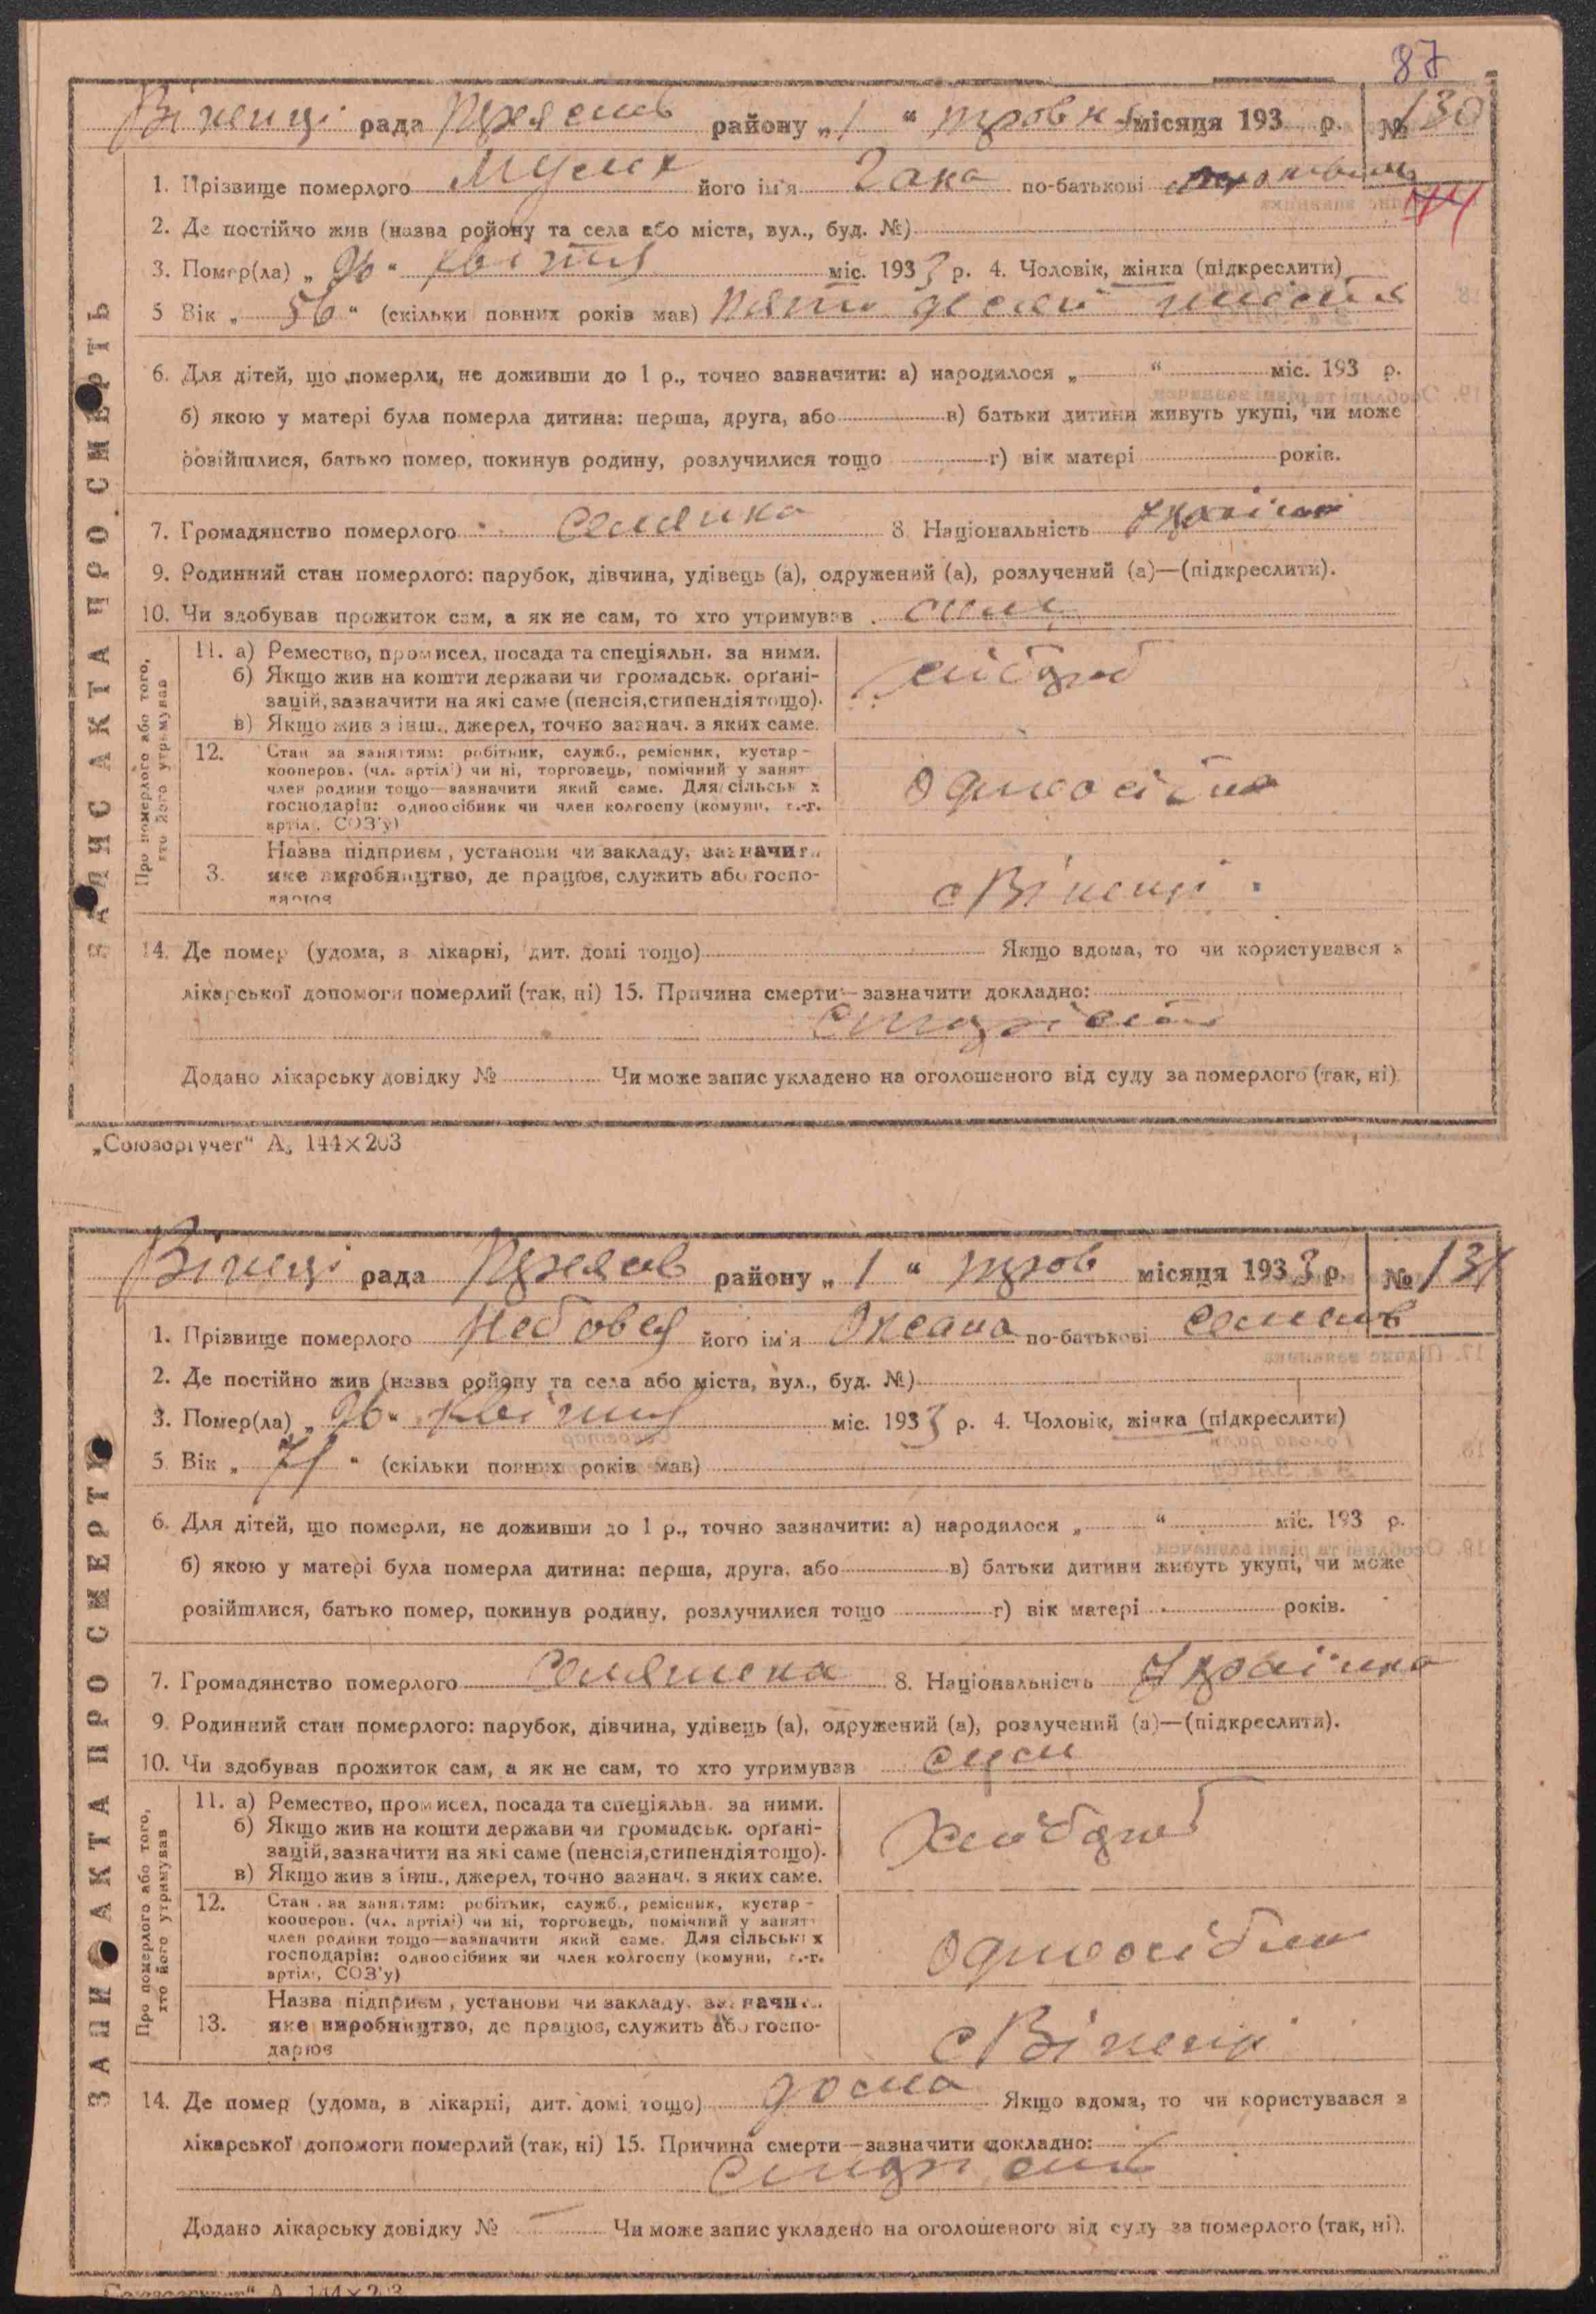 87
Віненці рада Переяслів району „ 1 “ травня місяця 193 р. № 130
1. Прізвище померлого його ім'я по-батькові
2. Де постійно жив (назва району та села або міста, вул., буд. №)
3. Помер(ла) „ 26 “ квітня міс. 1933 р. 4. Чоловік, жінка (підкреслити)
5 Вік „ 56 “ (скільки повних років мав) пятдесят шість
6. Для дітей, що померли, не доживши до 1 р., точно зазначити: а) народилося „ “ міс. 193 р.
б) якою у матері була померла дитина: перша, друга, або в) батьки дитини живуть укупі, чи може
розійшлися, батько помер, покинув родину, розлучилися тощо г) вік матері років.
7. Громадянство померлого селянка 8. Національність україн
9. Родинний стан померлого: парубок, дівчина, удівець (а), одружений (а), розлучений (а)—(підкреслити).
10. Чи здобував прожиток сам, а як не сам, то хто утримував
ЗАПИС АКТА ПРО СМЕРТЬ
Про померлого або того, хто його утримував
11. а) Ремество, промисел, посада та спеціяльн. за ними.
б) Якщо жив на кошти держави чи громадськ. орґані-
зацій, зазначити на які саме (пенсія, стипендія тощо).
в) Якщо жив з інш., джерел, точно зазнач. з яких саме.
хлібороб
12. Стан за заняттям: робітник, служб., ремісник, кустар-
кооперов. (чл. артілі) чи ні, торговець, помічний у занят
член родини тощо—зазначити який саме. Для сільськ х
господарів: одноосібник чи член колгоспу (комуни, с.-г.
артілі, СОЗ'у)
одноосібна
3. Назва підприєм, установи чи закладу, зазначити
яке виробництво, де працює, служить або госпо-
дарює
с Віненці
14. Де помер (удома, в лікарні, дит. домі тощо) Якщо вдома, то чи користувався з
лікарської допомоги померлий (так, ні) 15. Причина смерти—зазначити докладно:
старість
Додано лікарську довідку № Чи може запис укладено на оголошеного від суду за померлого (так, ні)
„Союзоргучет“ А, 144×203
Віненці рада Переяслів району „ 1 “ трав місяця 1933 р. № 131
1. Прізвище померлого його ім'я Оксана по-батькові Семенів
2. Де постійно жив (назва району та села або міста, вул., буд. №)
3. Помер(ла) „ 26 “ квітня міс. 1933 р. 4. Чоловік, жінка (підкреслити)
5 Вік „ 71 “ (скільки повних років мав)
6. Для дітей, що померли, не доживши до 1 р., точно зазначити: а) народилося „ “ міс. 193 р.
б) якою у матері була померла дитина: перша, друга, або в) батьки дитини живуть укупі, чи може
розійшлися, батько помер, покинув родину, розлучилися тощо г) вік матері років.
7. Громадянство померлого 8. Національність Українка
9. Родинний стан померлого: парубок, дівчина, удівець (а), одружений (а), розлучений (а)—(підкреслити).
10. Чи здобував прожиток сам, а як не сам, то хто утримував
ЗАПИС АКТА ПРО СМЕРТЬ
Про померлого або того, хто його утримував
11. а) Ремество, промисел, посада та спеціяльн. за ними.
б) Якщо жив на кошти держави чи громадськ. орґані-
зацій, зазначити на які саме (пенсія, стипендія тощо).
в) Якщо жив з інш., джерел, точно зазнач. з яких саме.
хлібороб
12. Стан за заняттям: робітник, служб., ремісник, кустар-
кооперов. (чл. артілі) чи ні, торговець, помічний у занят
член родини тощо—зазначити який саме. Для сільськ х
господарів: одноосібник чи член колгоспу (комуни, с.-г.
артілі, СОЗ'у)
одноосібна
13. Назва підприєм, установи чи закладу, зазначити
яке виробництво, де працює, служить або госпо-
дарює
с Віненці
14. Де помер (удома, в лікарні, дит. домі тощо) дома Якщо вдома, то чи користувався з
лікарської допомоги померлий (так, ні) 15. Причина смерти—зазначити докладно:
старість
Додано лікарську довідку № Чи може запис укладено на оголошеного від суду за померлого (так, ні).
„Союзоргучет“ А, 144×203